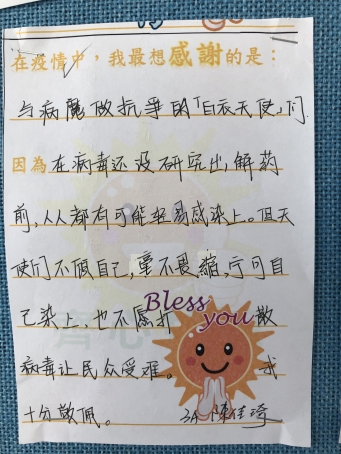 在疫情中，我最想感謝的是：
与病魔做抗争的「白衣天使」们.
因為在病毒还没研究出解药
前，人人都有可能轻易感染上。但天
使们不顾自己，毫不畏縮，宁可自
己染上，也不愿扩散
Bless
you
病毒让民众受难。我
十分敬佩。 3A 陳佳琦
齊心